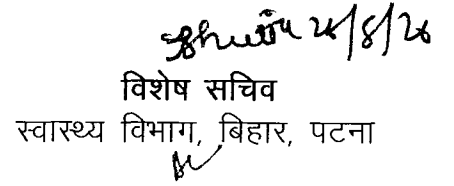 विशेष सचिव
स्वास्थ्य विभाग, बिहार, पटना